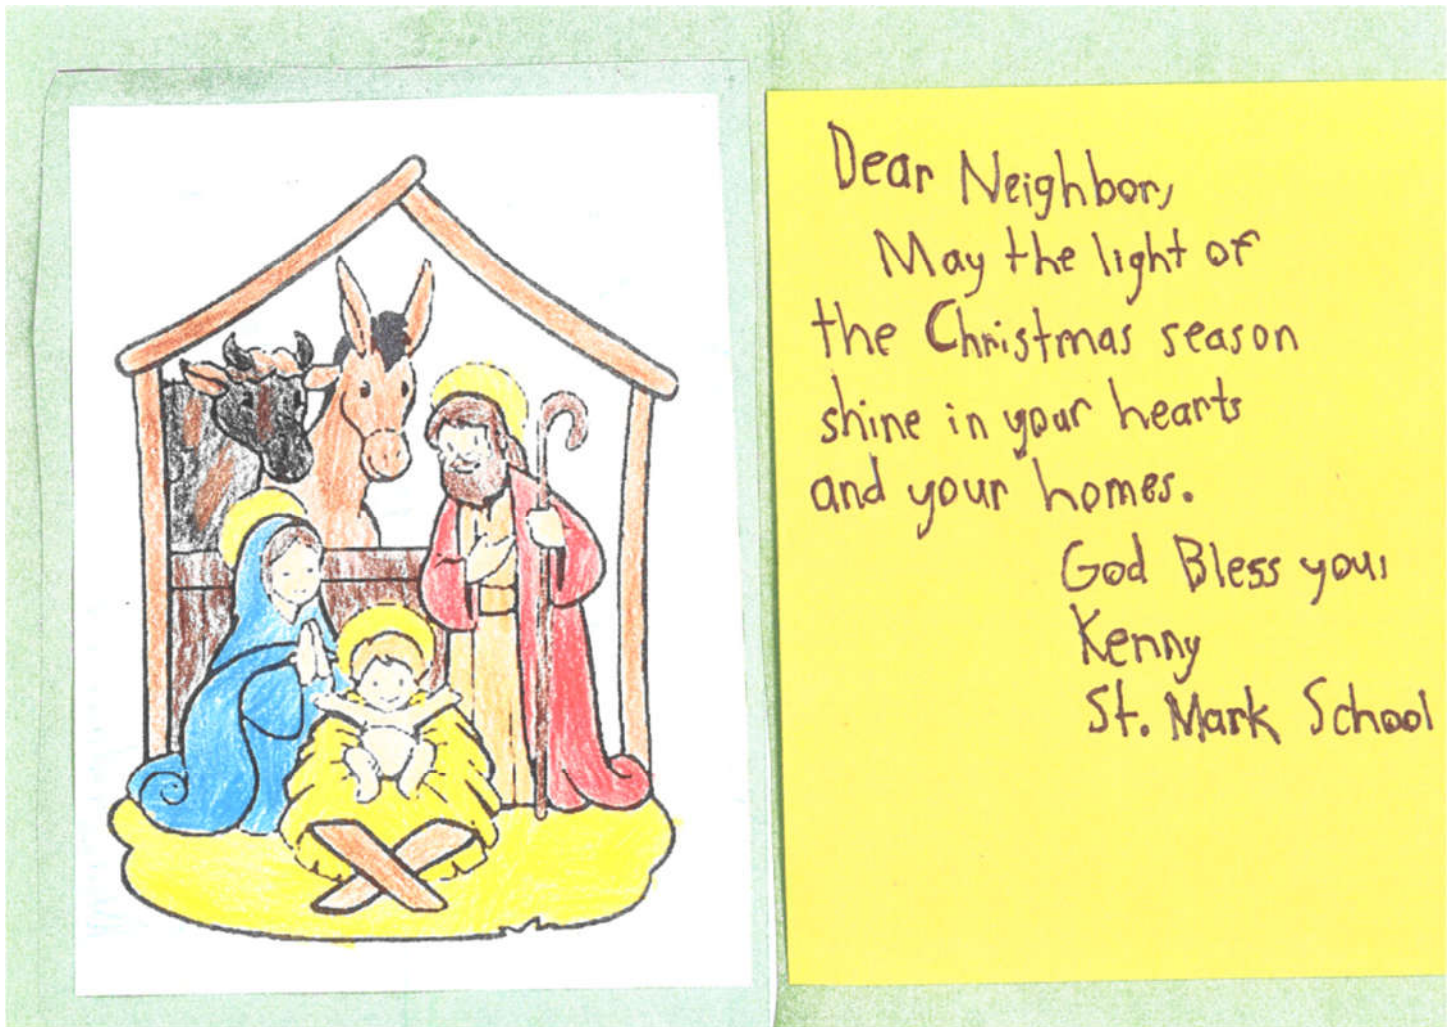 Dear Neighbor,
May the light of
the Christmas season
shine in your hearts
and your homes.
God Bless you,
Kenny
St. Mark School